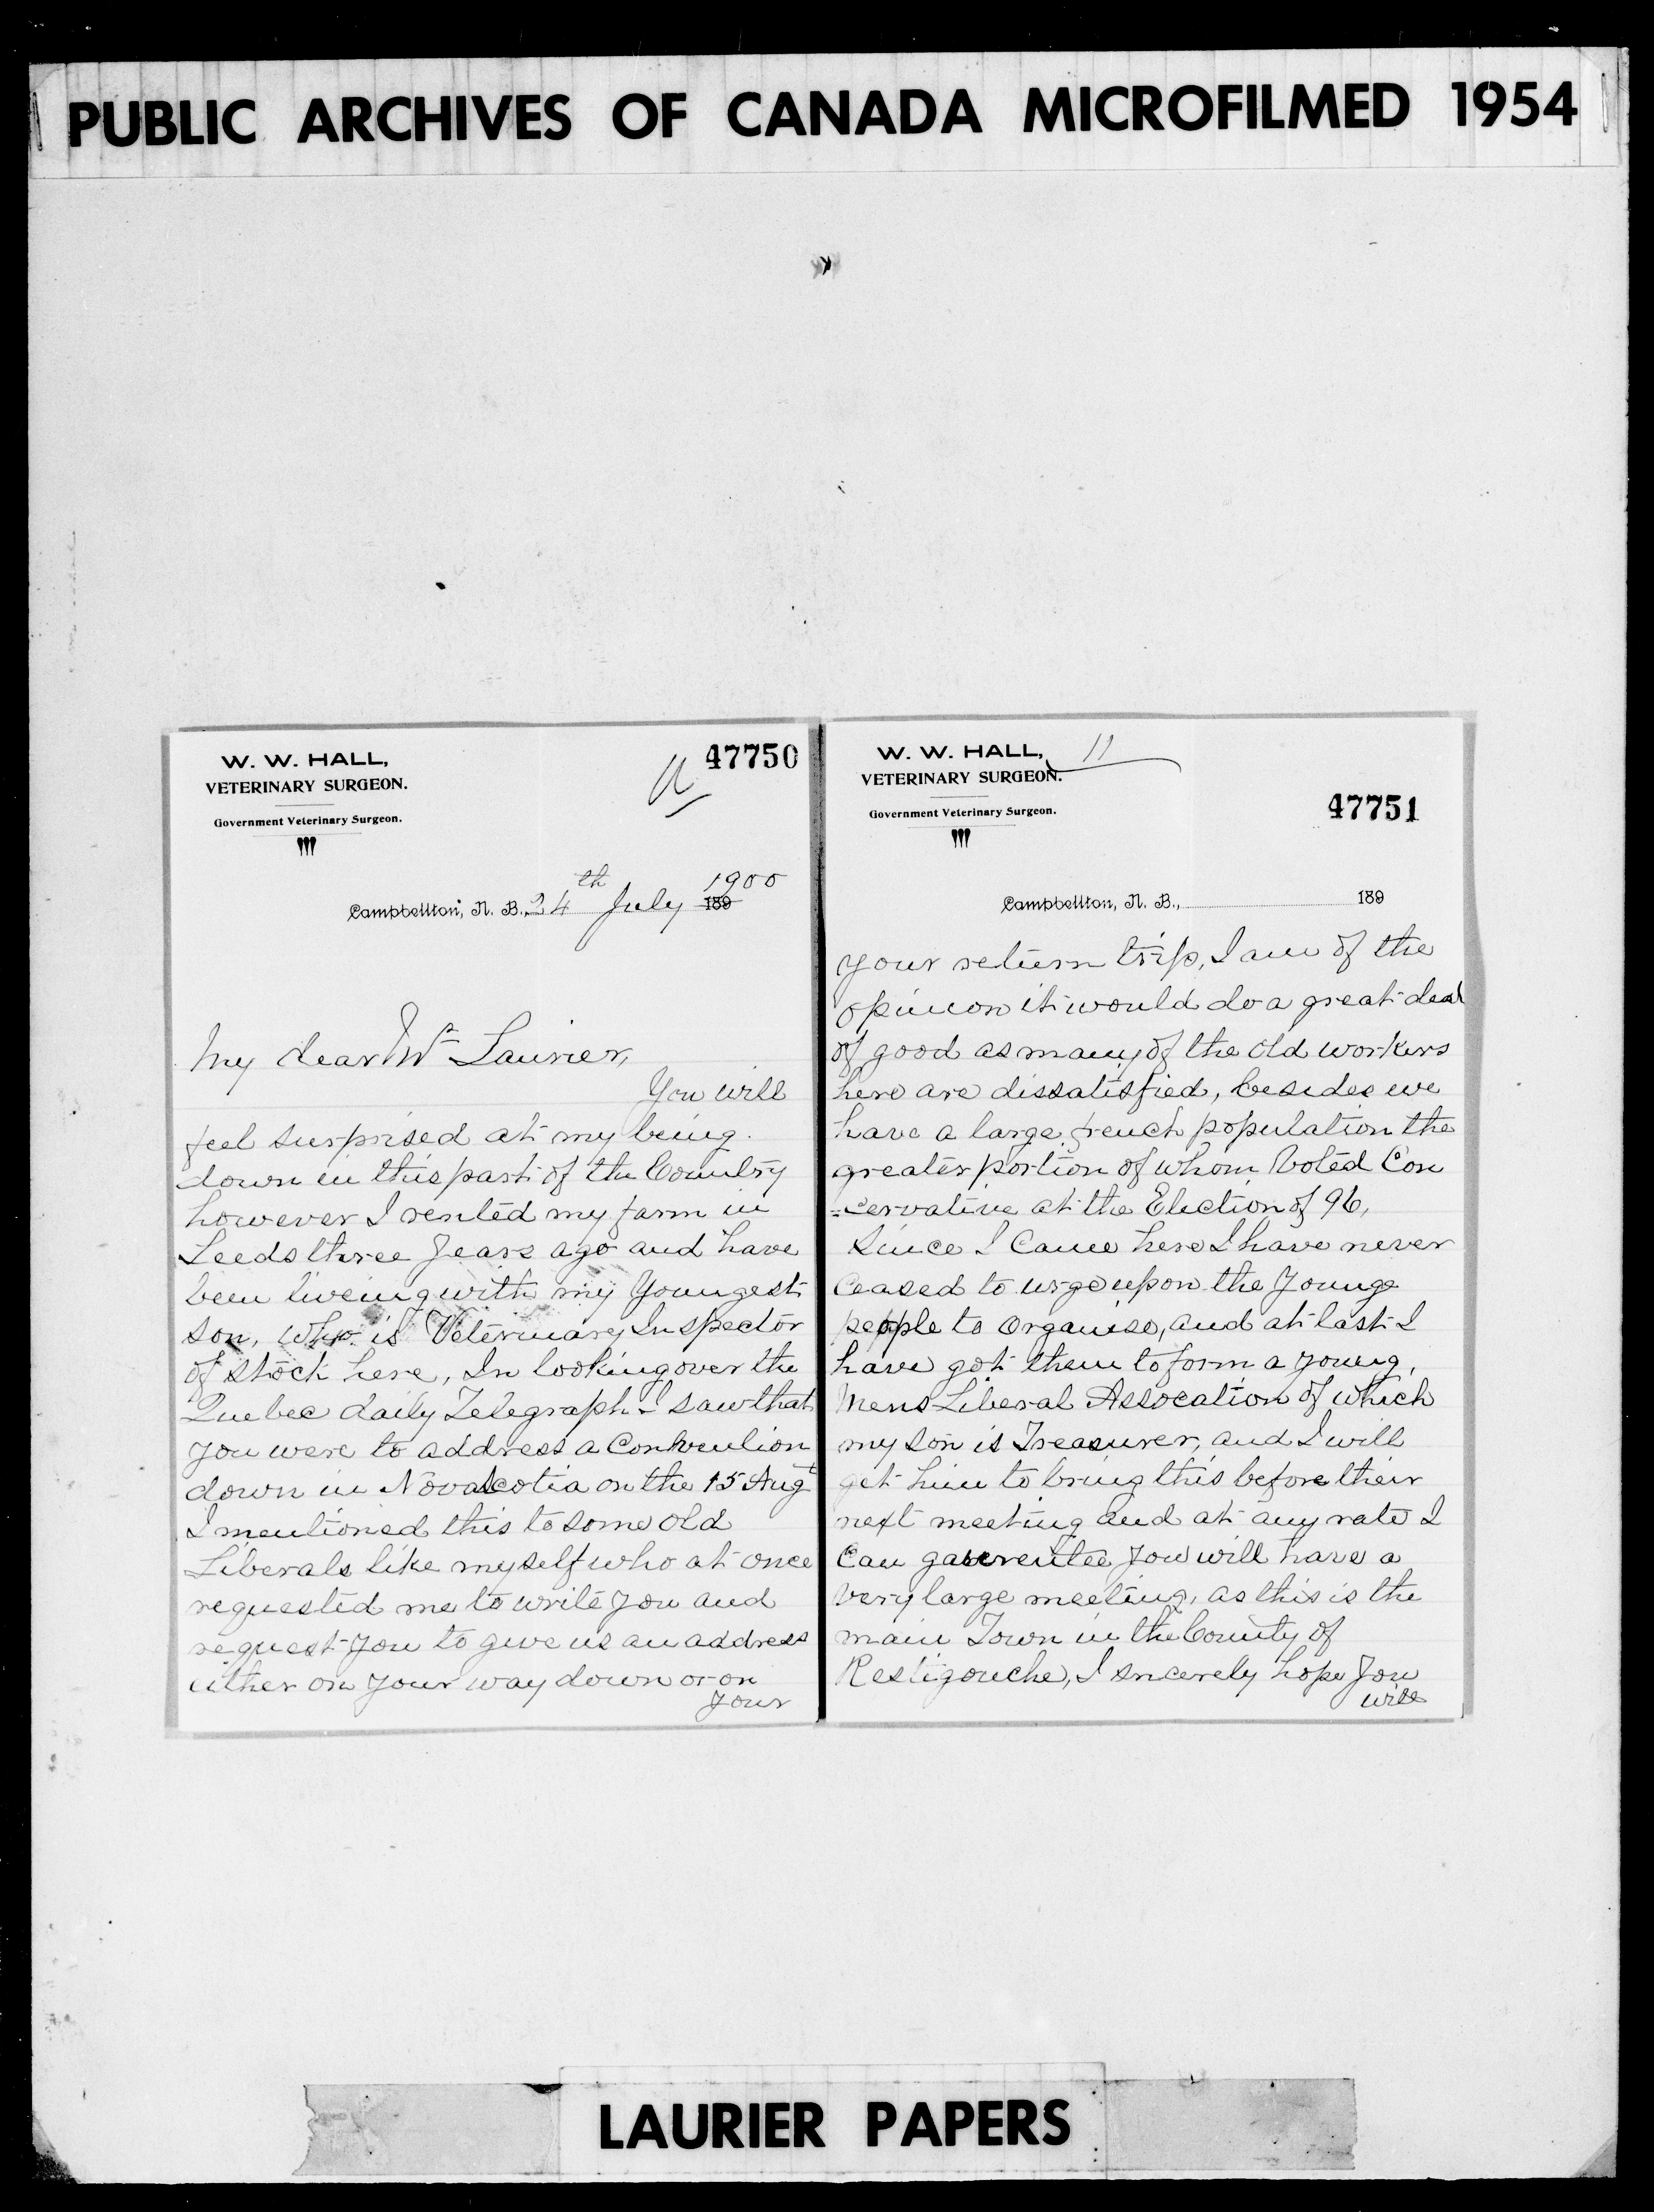 PUBLIC ARCHIVES OF CANADA MICROFILMED 1954
W. W. HALL,
VETERINARY SURGEON.
Government Veterinary Surgeon.
47750
Campbellton, N. B. 24th July 1900
189
My dear Mr Laurier,
You will
feel surprised at my being
down in this part of the Country
however I rented my farm in
Leeds three years ago and have
been liveing with my Youngest
son, who is Veterinary Inspector
of stock here, In looking over the
Quebec daily Telegraph I saw that
you were to address a Convention
down in Nova Scotia on the 15 Augt
I mentioned this to some old
Liberals like myself who at once
requested me to write you and
request you to give us an address
either on your way down or on
your
W. W. HALL,
11
VETERINARY SURGEON.
Government Veterinary Surgeon.
47751
Campbellton, N. B., 189
your return trip, I am of the
opinion it would do a great deal
of good as many of the old workers
here are dissatisfied, besides we
have a large french population the
greater portion of whom Voted Con
=servative at the Election of 96,
Since I Came here I have never
Ceased to urge upon the Younge
people to Organise, and at last I
have got them to form a young,
Mens Liberal Assocation of which
my son is Treasurer, and I will
get him to bring this before their
next meeting and at any rate I
Can you will have a
very large meeting, as this is the
main Town in the County of
Restigouche, I sincerely hope You
will
LAURIER PAPERS